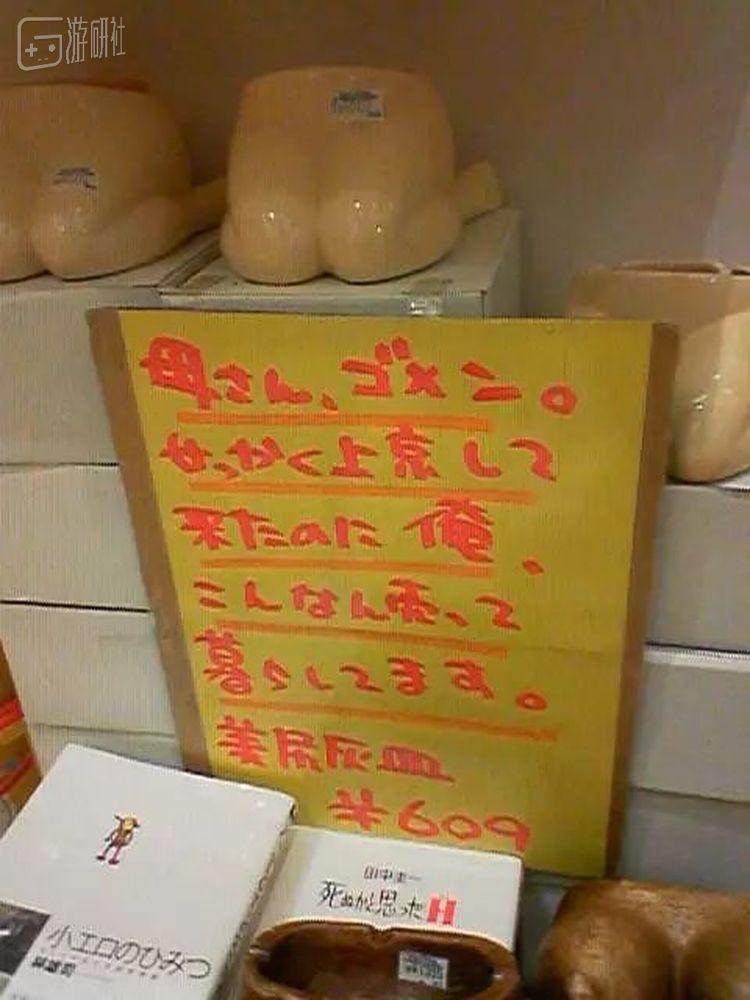 游研社
母さん、ゴメン。
せっかく上京して
来たのに俺、
こんなん売って
暮らしてます。
美尻灰皿
¥609
小エロのひみつ
田中圭一
死ぬかと思ったH